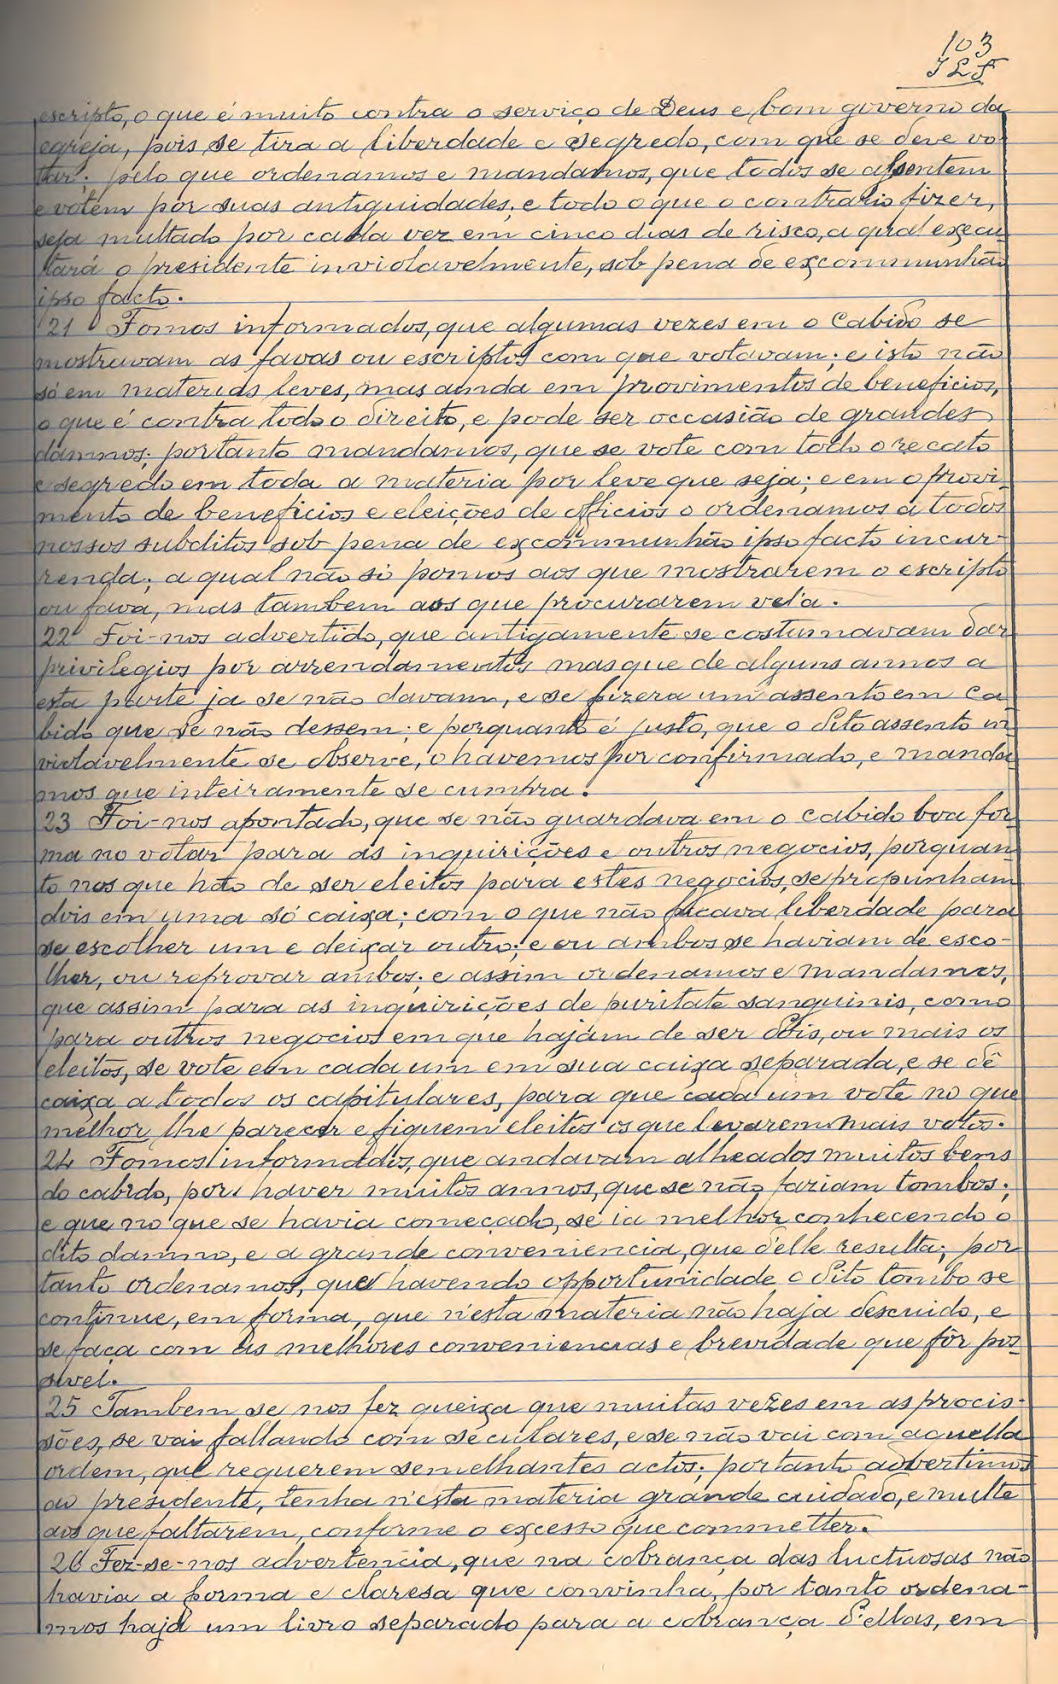 103
escripto, o que é muito contra o serviço de Deus e bom governo da
egreja, pois se tira a liberdade e segredo, com que se deve vo-
tar: pelo que ordenamos e mandamos, que todos se assentem
e votem por suas antiguidades, e todo o que o contrario fizer,
seja multado por cada vez em cinco dias de risco, a qual execu-
tará o presidente inviolavelmente, sob pena de excommunhão
ipso facto.
21 Fomos informados, que algumas vezes em o Cabido se
mostravam as favas ou escriptos com que votavam; e isto não
só em materias leves, mas ainda em provimentos de beneficios,
o que é contra todo o direito, e pode ser occasião de grandes
damnos; portanto mandamos, que se vote com todo o recato
e segredo em toda a materia por leve que seja; e em o provi-
mento de beneficios e eleições de officios o ordenamos a todos
nossos subditos sob pena de excommunhão ipso facto incur-
renda; a qual não só pomos aos que mostrarem o escripto
ou fava, mas tambem aos que procurarem vel'a.
22 Foi-nos advertido, que antigamente se costumavam dar
privilegios por arrendamentos mas que de alguns annos a
esta parte ja se não davam, e se fizera um assento em Ca-
bido que se não dessem; e porquanto é justo, que o dito assento in-
violavelmente se observe, o havemos por confirmado, e manda-
mos que inteiramente se cumpra.
23 Foi-nos apontado, que se não guardava em o cabido boa for-
ma no votar para as inquirições e outros negocios, porquan-
to nos que hão de ser eleitos para estes negocios, se propunham
dois em uma só caixa; com o que não ficava liberdade para
se escolher um e deixar outro; e ou ambos se haviam de esco-
lher, ou reprovar ambos; e assim ordenamos e mandamos,
que assim para as inquirições de puritate sanguinis, como
para outros negocios em que hajam de ser dois, ou mais os
eleitos, se vote em cada um em sua caixa separada, e se dê
caixa a todos os capitulares, para que cada um vote no que
melhor lhe parecer e fiquem eleitos os que levarem mais votos.
24 Fomos informados, que andavam alheados muitos bens
do cabido, por haver muitos annos, que se não faziam tombos;
e que no que se havia começado, se ia melhor conhecendo o
dito damno, e a grande conveniencia, que d'elle resulta; por-
tanto ordenamos, que havendo opportunidade o dito tombo se
continue, em forma, que n'esta materia não haja descuido, e
se faça com as melhores conveniencias e brevidade que fôr pos-
sivel.
25 Tambem se nos fez queixa que muitas vezes em as procis-
sões, se vai fallando com seculares, e se não vai com aquella
ordem, que requerem semelhantes actos; portanto advertimos
ao presidente, tenha n'esta materia grande cuidado, e multe
aos que faltarem, conforme o excesso que commetter.
26 Fez-se-nos advertencia, que na cobrança das luctuosas não
havia a forma e claresa que convinha, por tanto ordena-
mos haja um livro separado para a cobrança d'ellas, em